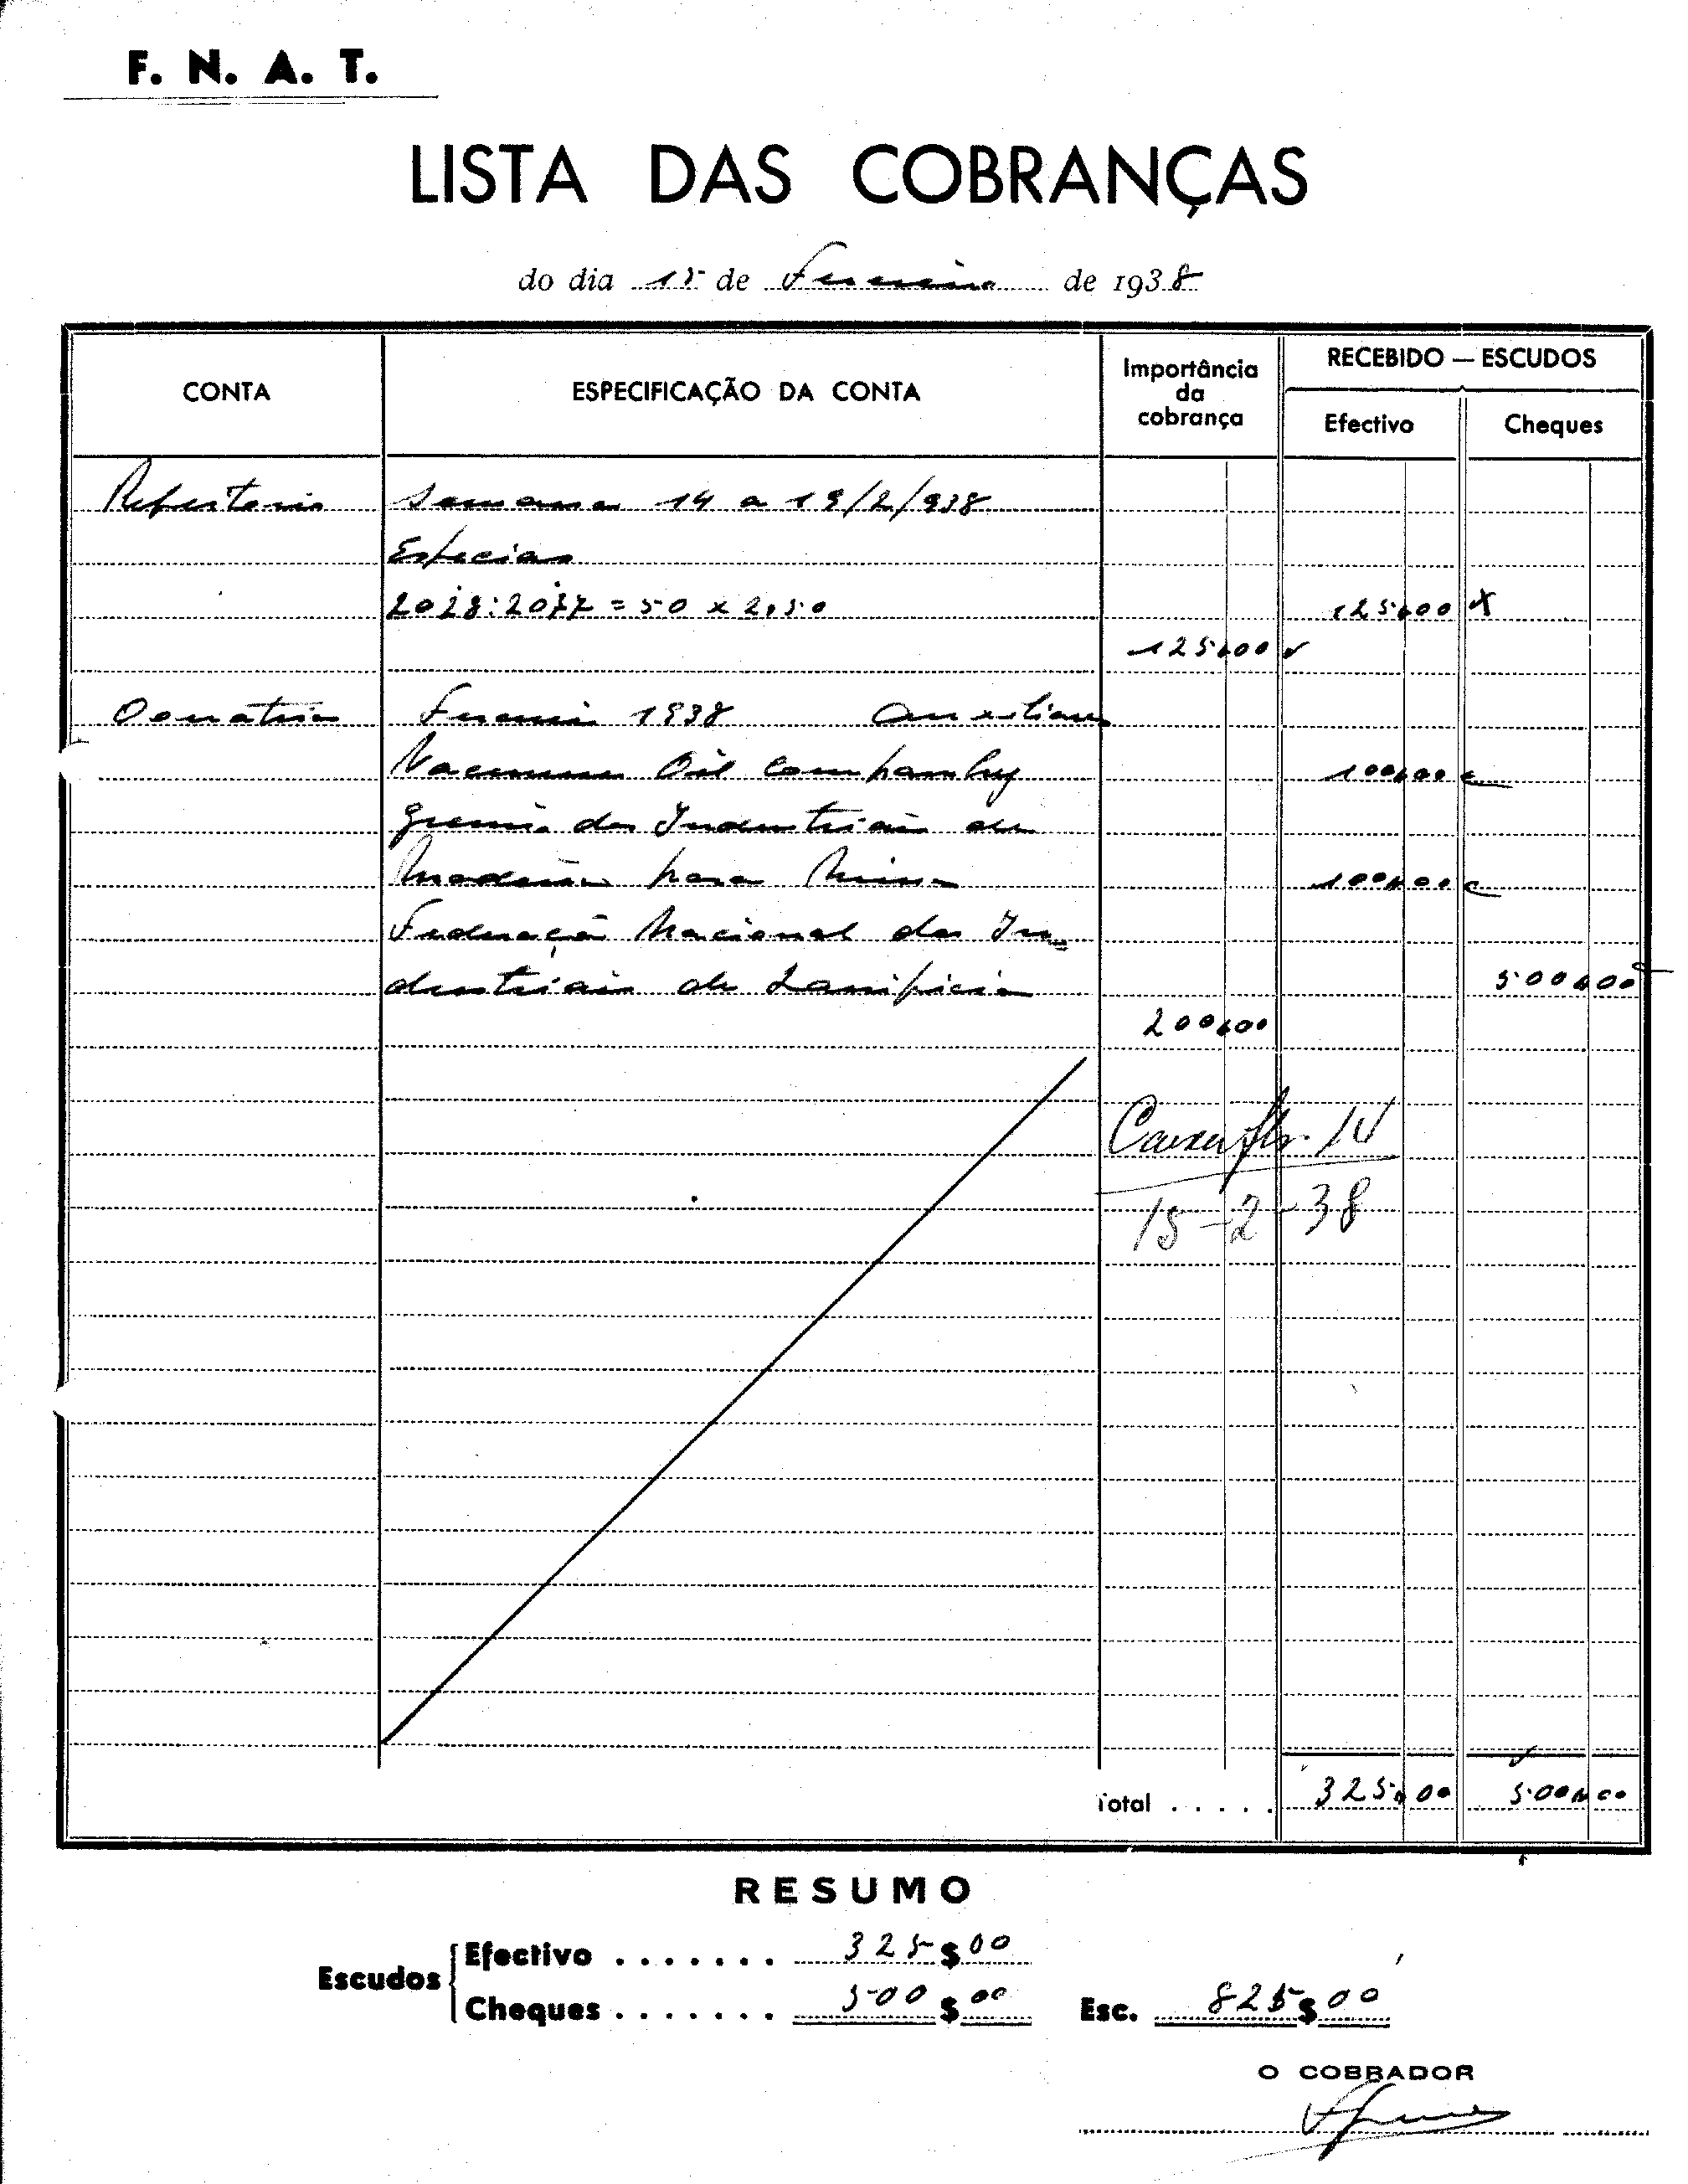 F. N. A. T.
LISTA DAS COBRANÇAS
do dia 15 de Fevereiro de 1938
CONTA
ESPECIFICAÇÃO DA CONTA
Importância
da
cobrança
RECEBIDO — ESCUDOS
Efectivo
Cheques
Refeitorio Semana 14 a 19/2/938
Especiais
2028:2077 = 50 x 2,50 125$00
125$00
Donativos Fevereiro 1938 Auxiliares
Vacuum Oil Companhy 100$00
Gremio dos Industriais de
Madeiras para Minas 100$00
Federação Nacional dos In=
dustriais de Lanificios 500$00
200$00
Caixa fls. 14
15-2-38
Total . . . . . 325$00 500$00
RESUMO
Escudos
Efectivo . . . . . . . 325$00
Cheques . . . . . . . 500$00 Esc. 825$00
O COBRADOR